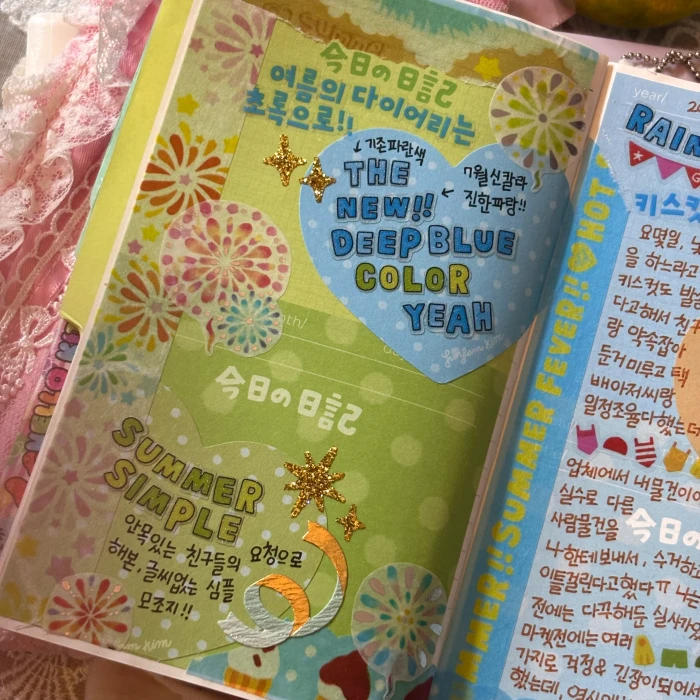 今日の日記
여름의 다이어리는
초록으로!!
기존파란색
THE
NEW!!
DEEP BLUE
COLOR
YEAH
7월신칼라
진한파랑!!
今日の日記
SUMMER
SIMPLE
안목있는 친구들의 요청으로
해본, 글씨없는 심플
모조지!!
year/
키스컷
요몇일,
을 하느라
키스컷도
다고해서
랑 약속잡아
둔거 미루고 택
배아저씨랑
일정조율다했는데
HOT
SUMMER FEVER!!
업체에서 내물건이
실수로 다른
사람물건을
今日の
나한테보내서, 수거하고
이틀걸린다고했다ㅠ 나는
전에는 다꾸해둔 실사가
마켓전에는 여러
가지로 걱정& 긴장이되어
했는데,